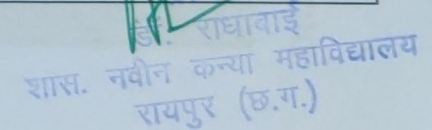 डॉ. राधाबाई
शास. नवीन कन्या महाविद्यालय
रायपुर (छ.ग.)